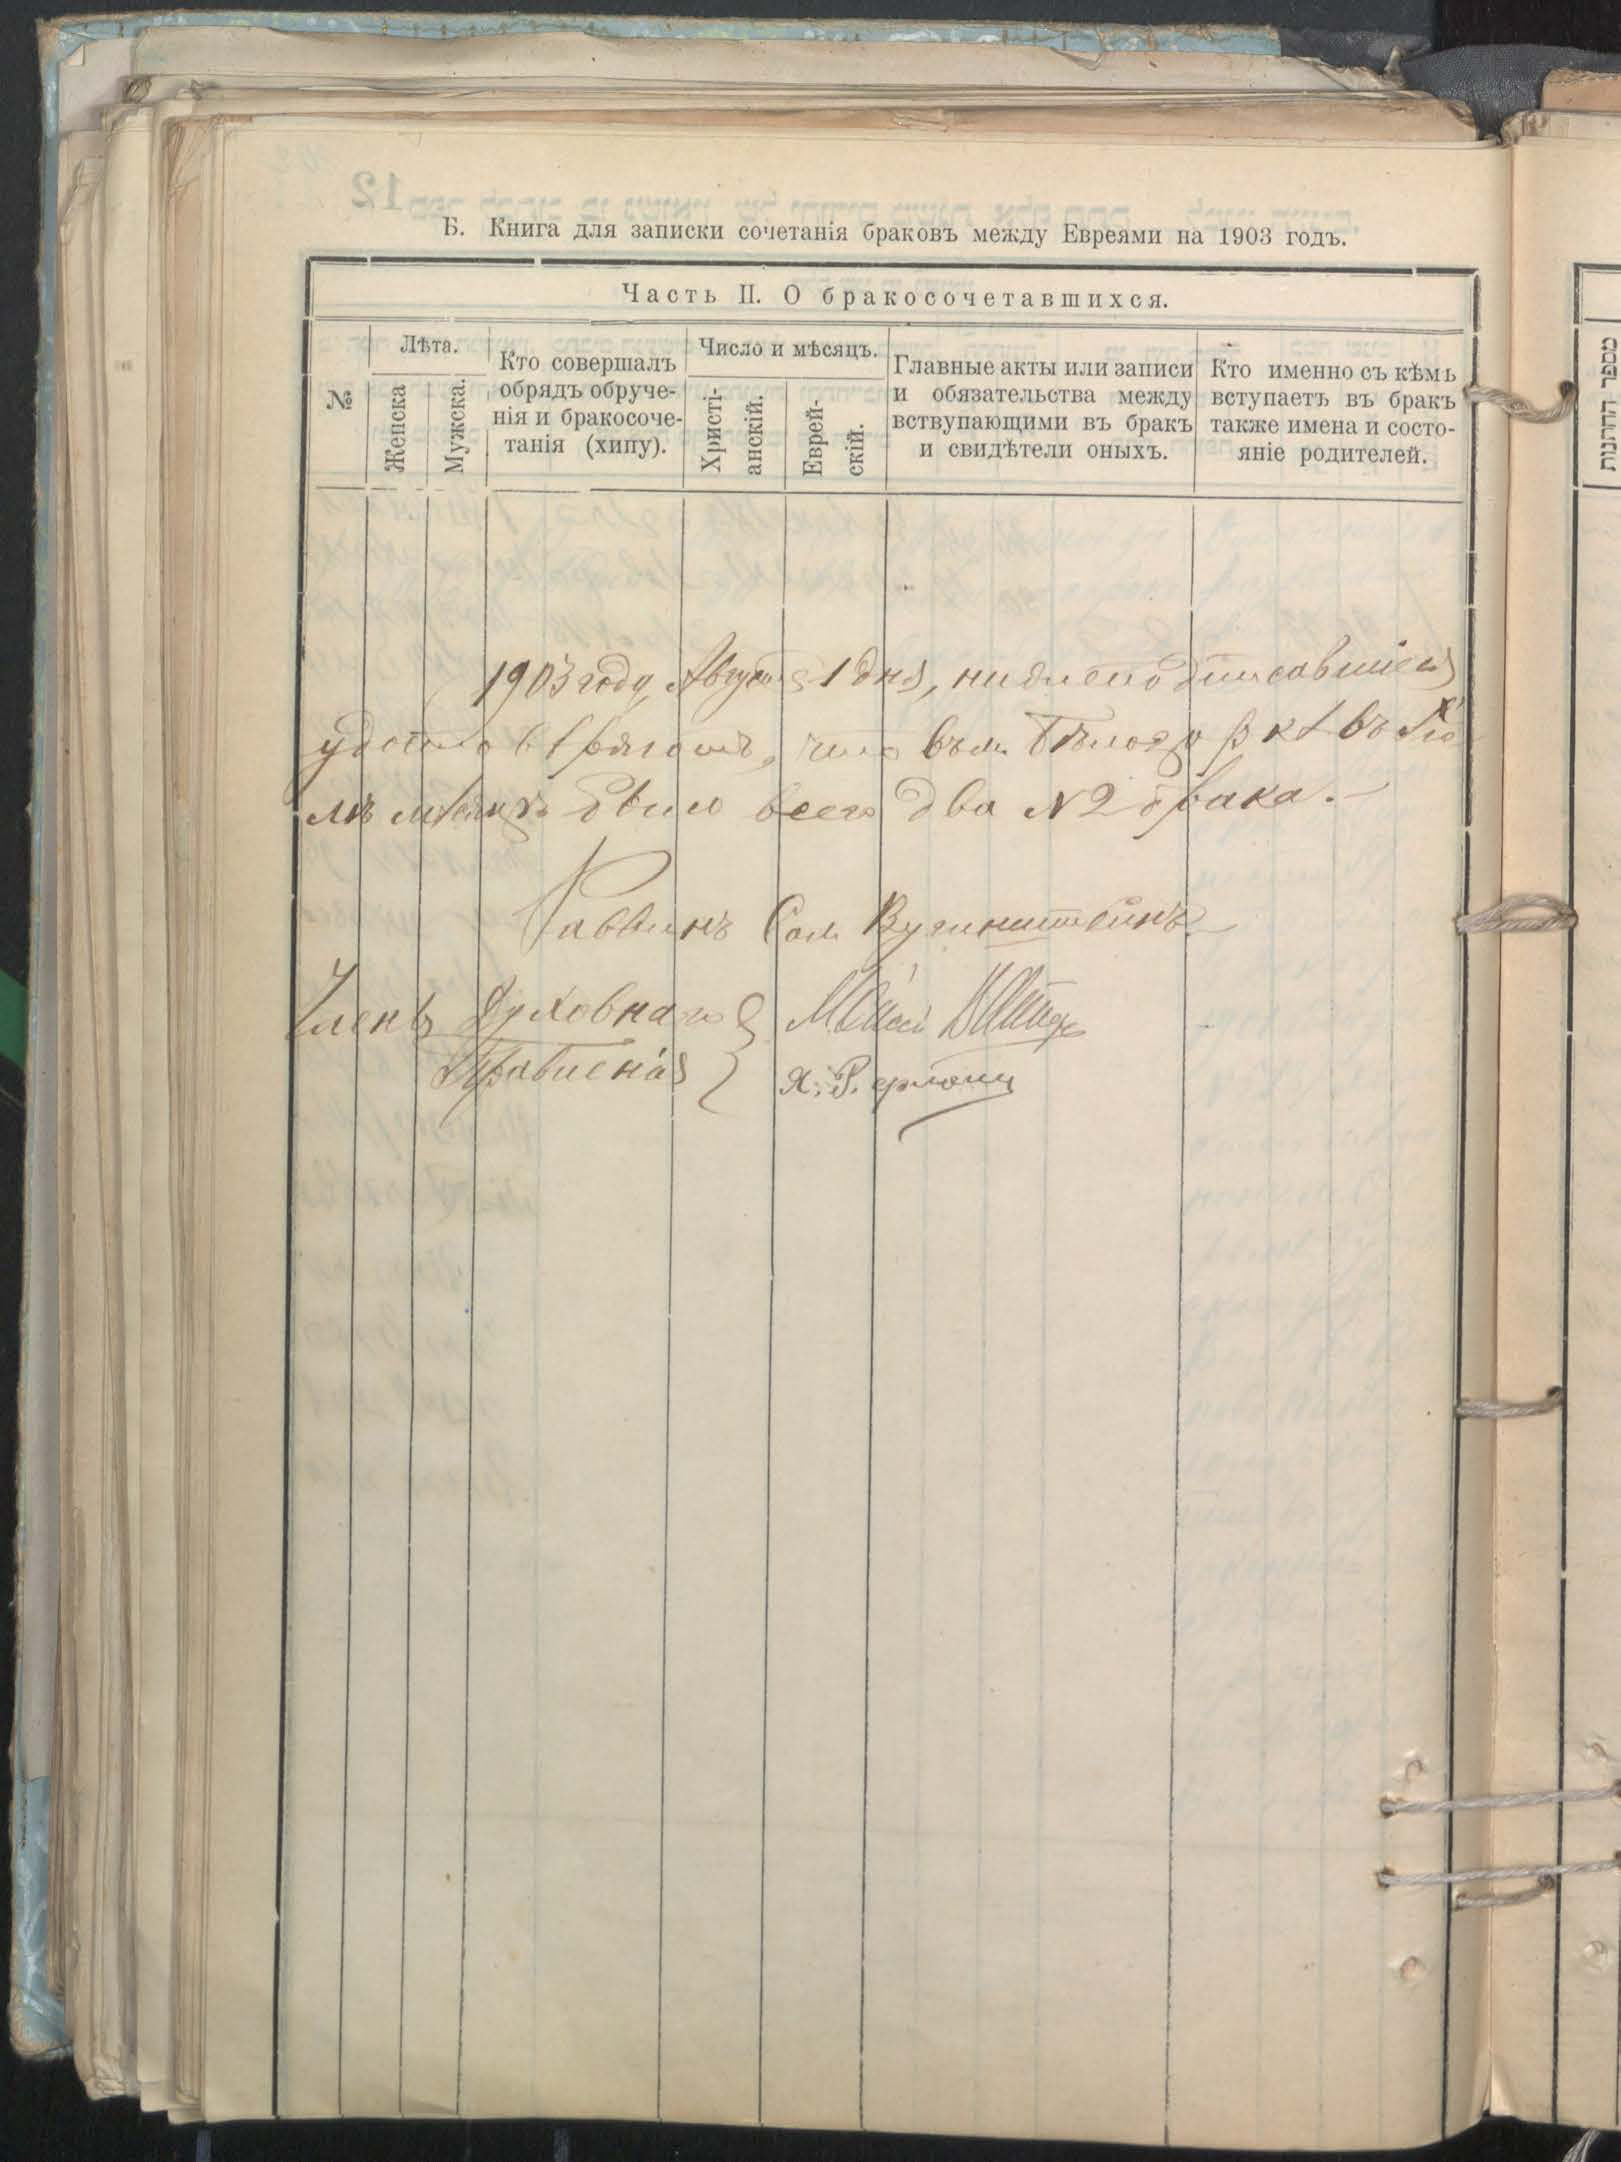 Б. Книга для записки сочетанія браковъ между Евреями на 1903 годъ.
Часть II. О бракосочетавшихся.
№
Лѣта.
Женска
Мужска.
Кто совершалъ
обрядъ обруче-
нія и бракосоче-
танія (хипу).
Число и мѣсяцъ.
Христі-
анскій.
Еврей-
скій.
Главные акты или записи
и обязательства между
вступающими въ бракъ
и свидѣтели оныхъ.
Кто именно съ кѣмъ
вступаетъ въ бракъ
также имена и состо-
яніе родителей.
1903 году Августа 1 дня, нижеподписавшіеся
удостовѣряютъ, что въ м. въ Ію
лѣ мѣсяцѣ было всего два № 2 брака.
Раввинъ Сол.
Членъ Духовнаго
Правленія
Я.
מספר החתנות